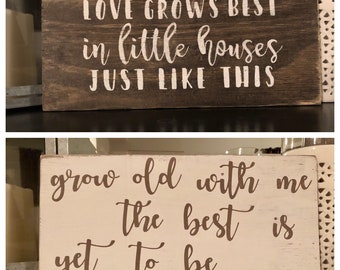 LOVE GROWS BEST
in little houses
JUST LIKE THIS
grow old with me
the best is
yet to be